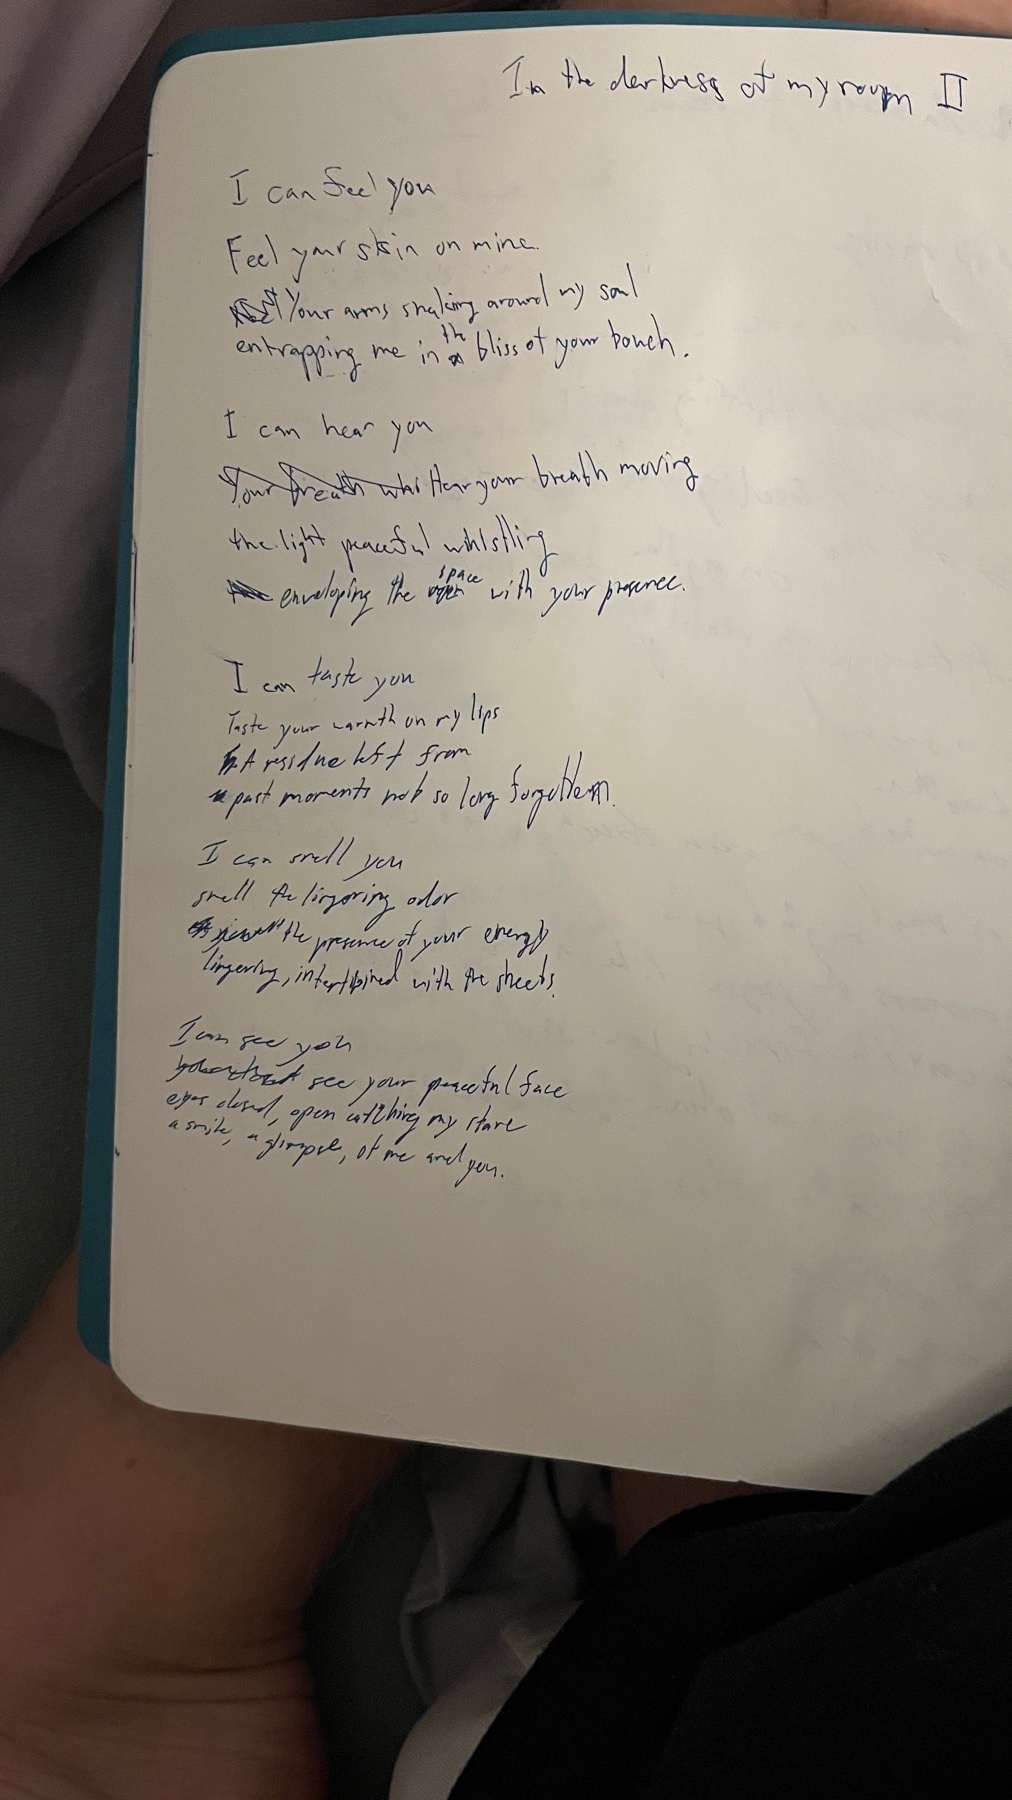 In the darkness of my room II
I can feel you
Feel your skin on mine.
Your arms snaking around my soul
entrapping me in the bliss of your touch.
I can hear you
Your breath whi Hear your breath moving
the light peaceful whistling
enveloping the space with your presence.
I can taste you
Taste your warmth on my lips
A residue left from
past moments not so long forgotten.
I can smell you
smell the lingering odor
the presence of your energy
lingering, intertwined with the sheets.
I can see you
see your peaceful face
eyes closed, open catching my stare
a smile, a glimpse, of me and you.